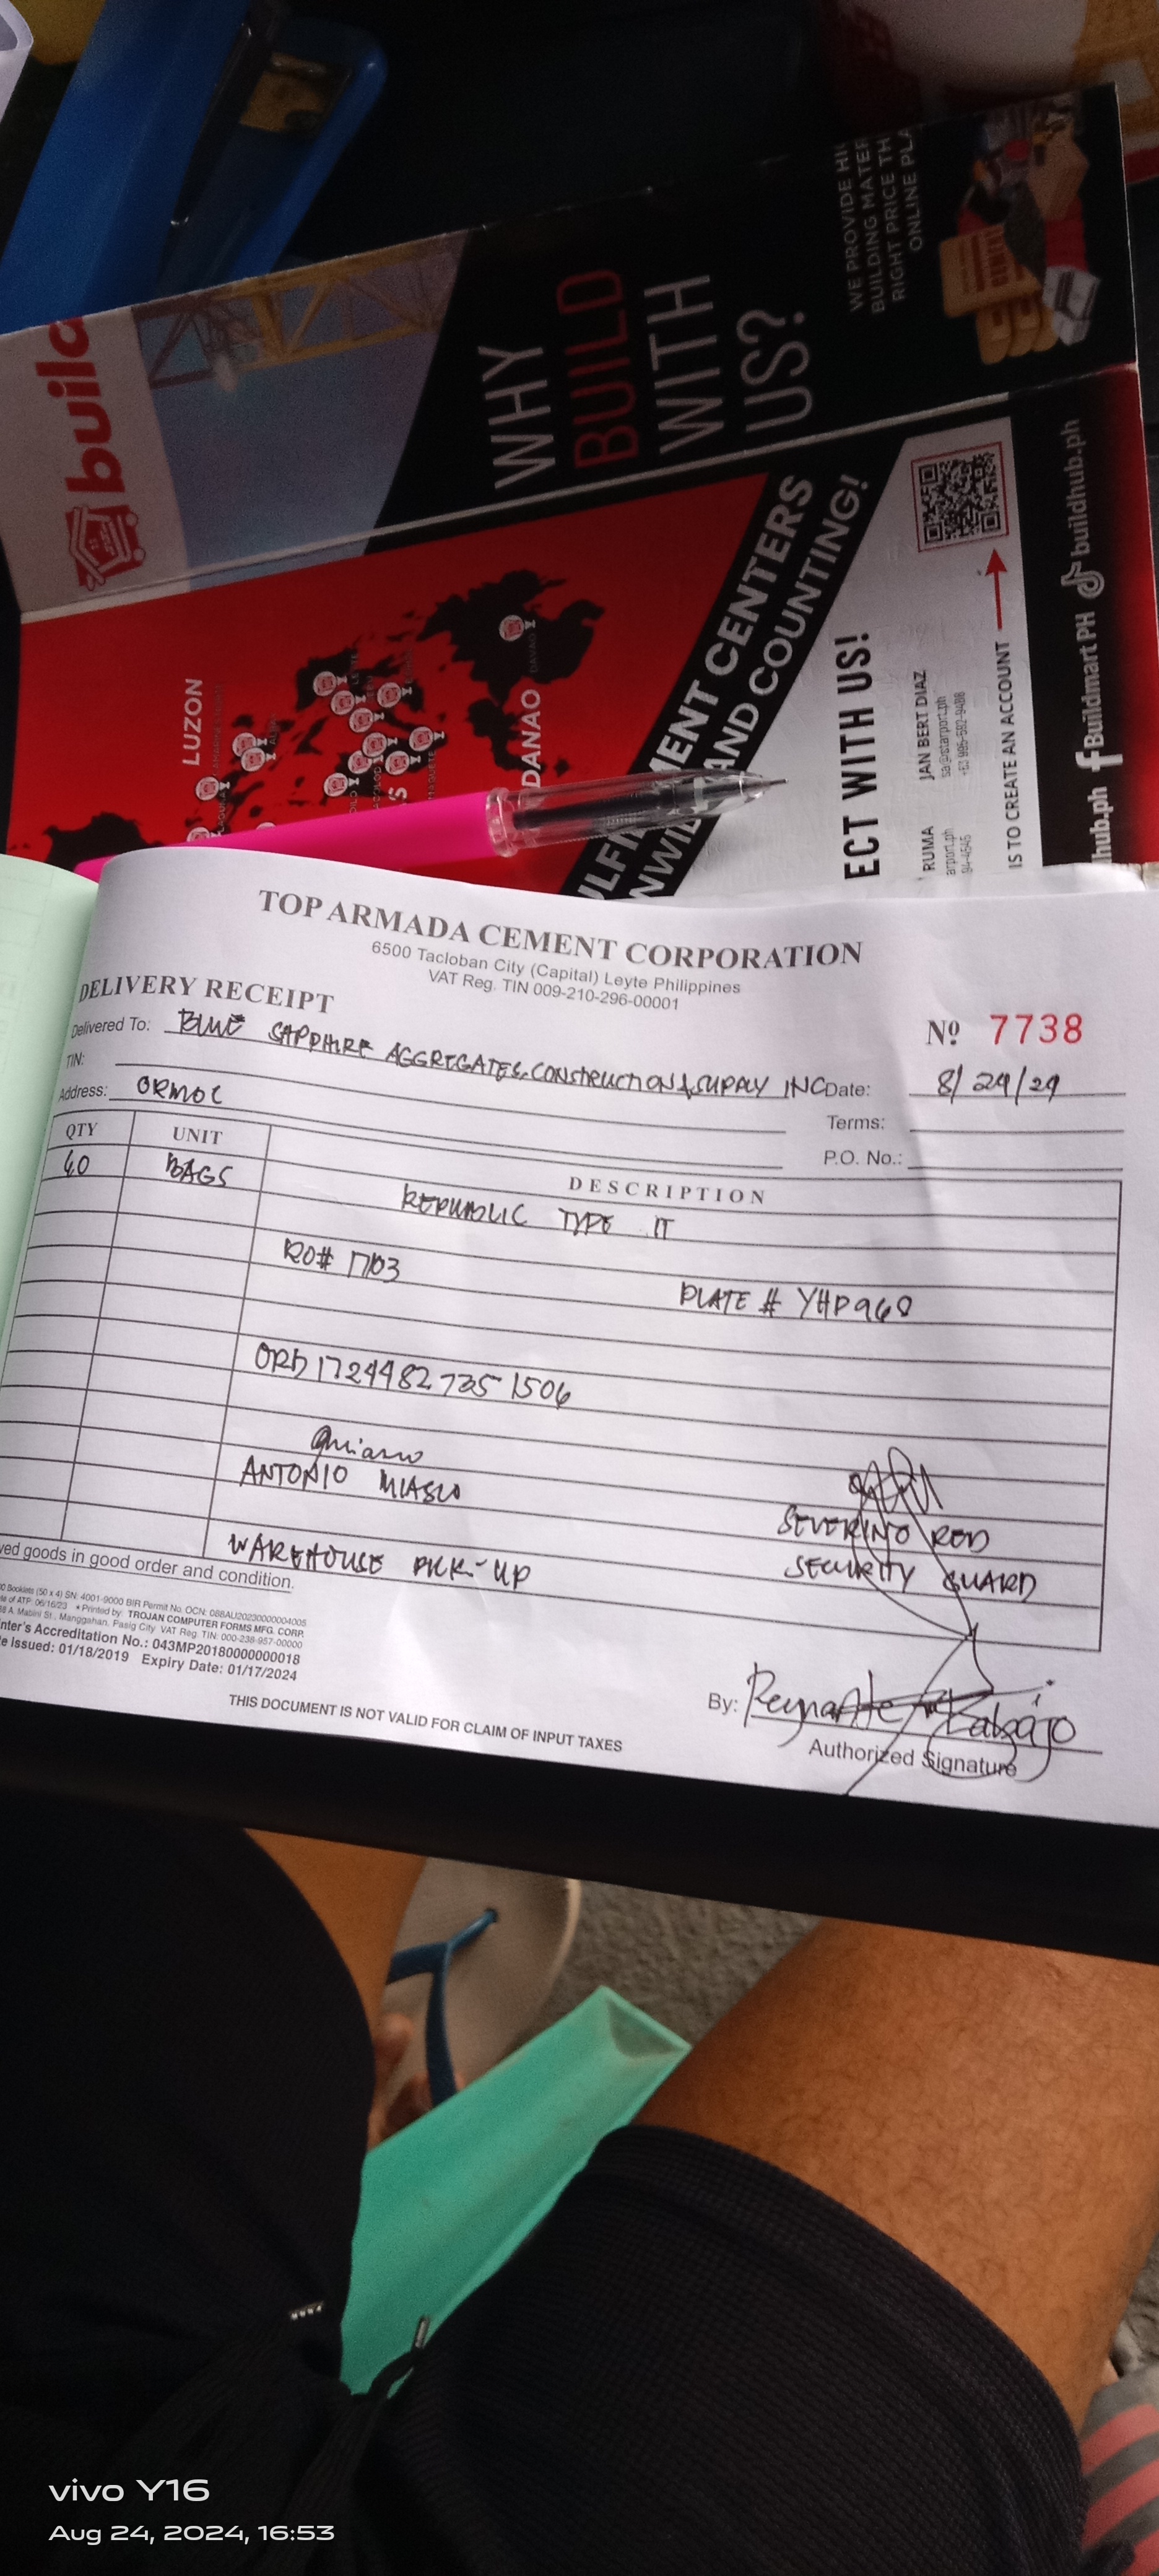 build
WHY
BUILD
WITH
US?
WE PROVIDE HI
BUILDING MATER
RIGHT PRICE TH
ONLINE PLA
LUZON
DANAO
DAVAO
ENT CENTERS
AND COUNTING!
ECT WITH US!
RUMA
JAN BERT DIAZ
IS TO CREATE AN ACCOUNT
hub.ph
BuildmartPH
buildhub.ph
TOP ARMADA CEMENT CORPORATION
6500 Tacloban City (Capital) Leyte Philippines
VAT Reg. TIN 009-210-296-00001
DELIVERY RECEIPT
Nº 7738
Delivered To: BLUE SAPPHIRE AGGREGATES, CONSTRUCTION & SUPPLY INC
Date: 8/24/24
TIN:
Terms:
Address: ORMOC
P.O. No.:
QTY UNIT DESCRIPTION
40 BAGS REPUBLIC TYPE IT
RO# 1703
PLATE # YHP968
ORD17244827351506
ANTONIO
SEVERINO RED
SECURITY GUARD
WAREHOUSE PICK-UP
ved goods in good order and condition.
0 Booklets (50 x 4) SN: 4001-9000 BIR Permit No. OCN: 088AU20230000004005
te of ATP: 06/16/23 *Printed by: TROJAN COMPUTER FORMS MFG. CORP.
88 A. Mabini St., Manggahan, Pasig City VAT Reg. TIN: 000-238-957-00000
inter's Accreditation No.: 043MP20180000000018
e Issued: 01/18/2019 Expiry Date: 01/17/2024
THIS DOCUMENT IS NOT VALID FOR CLAIM OF INPUT TAXES
By: Reynante
Authorized Signature
vivo Y16
Aug 24, 2024, 16:53